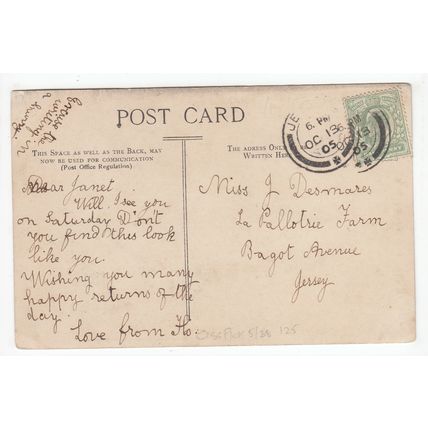 Excuse the
writing in
a hurry.
POST CARD
THIS SPACE AS WELL AS THE BACK, MAY
NOW BE USED FOR COMMUNICATION
(Post Office Regulation)
THE ADRESS ONLY
WRITTEN HER
JE
6. PM
OC 13
05
6. PM
OC 13
05
Dear Janet.
Will. I see you
on Saturday D'ont
you find this look
like you.
Wishing you many
happy returns of the
day.
Love from Flo.
Miss J Desmares
La Pallotrie Farm
Bagot Avenue
Jersey
5/28 125